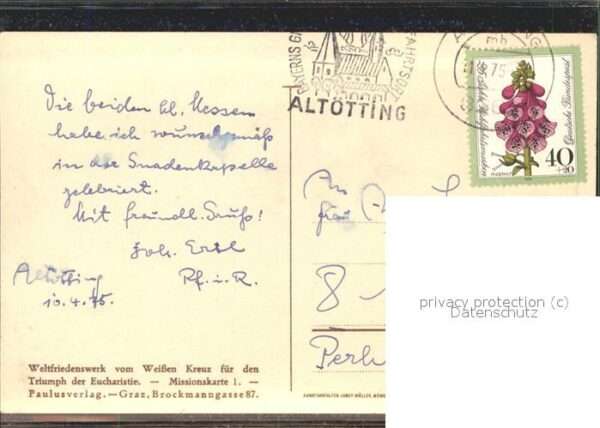 BAYERNS
ALTÖTTING
75
40
+20
Deutsche Bundespost
Die beiden hl. Messen
habe ich wunschgemäß
in der Gnadenkapelle
zelebriert.
Mit freundl. Gruß!
Joh. Ertl
Pf. i. R.
Altötting
10.4.75.
An
Frau
8
Perl
privacy protection (c)
Datenschutz
Weltfriedenswerk vom Weißen Kreuz für den
Triumph der Eucharistie. — Missionskarte 1. —
Paulusverlag. — Graz, Brockmanngasse 87.